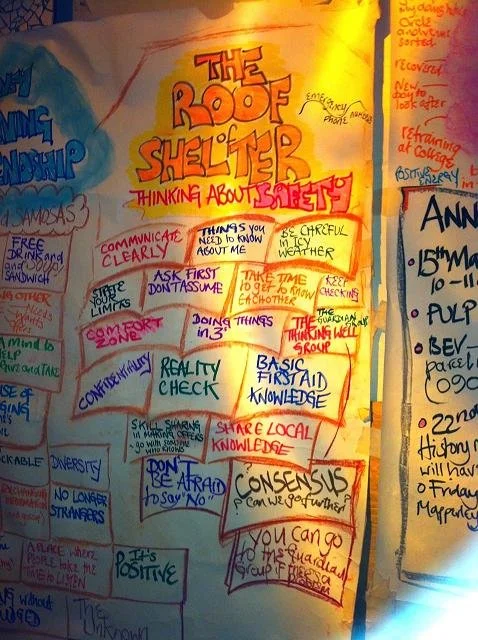 THE
ROOF
of
SHELTER
THINKING ABOUT SAFETY
EMERGENCY
PHONE NUMBERS
COMMUNICATE
CLEARLY
THINGS YOU
NEED TO KNOW
ABOUT ME
BE CAREFUL
IN ICY
WEATHER
STATE
YOUR
LIMITS
ASK FIRST
DON'T ASSUME
TAKE TIME
to get to KNOW
EACHOTHER
KEEP
CHECKING
COMFORT
ZONE
DOING THINGS
in 3's
THE
GUARDIAN
GROUP
THE
THINKING WELL
GROUP
CONFIDENTIALITY
REALITY
CHECK
BASIC
FIRST AID
KNOWLEDGE
SKILL SHARING
IN MAKING OFFERS
- go with someone
who knows
SHARE LOCAL
KNOWLEDGE
DON'T
BE AFRAID
to say "NO"
CONSENSUS
? Can we go further?
you can go
to the Guardian
Group if theres a
PROBLEM
SAMOSAS
FREE
DRINK and
SANDWICH
Needs
DIVERSITY
NO LONGER
STRANGERS
A PLACE WHERE
PEOPLE take the
TIME to LISTEN
IT'S
POSITIVE
The
Unknown
Circle
sorted
recovered
New
day to
look after
retraining
at College
POSITIVE ENERGY
ANN
15th Ma
10-11
PULP
BEV-
parcel
(090
22nd
History
will hav
Friday
Mapperley